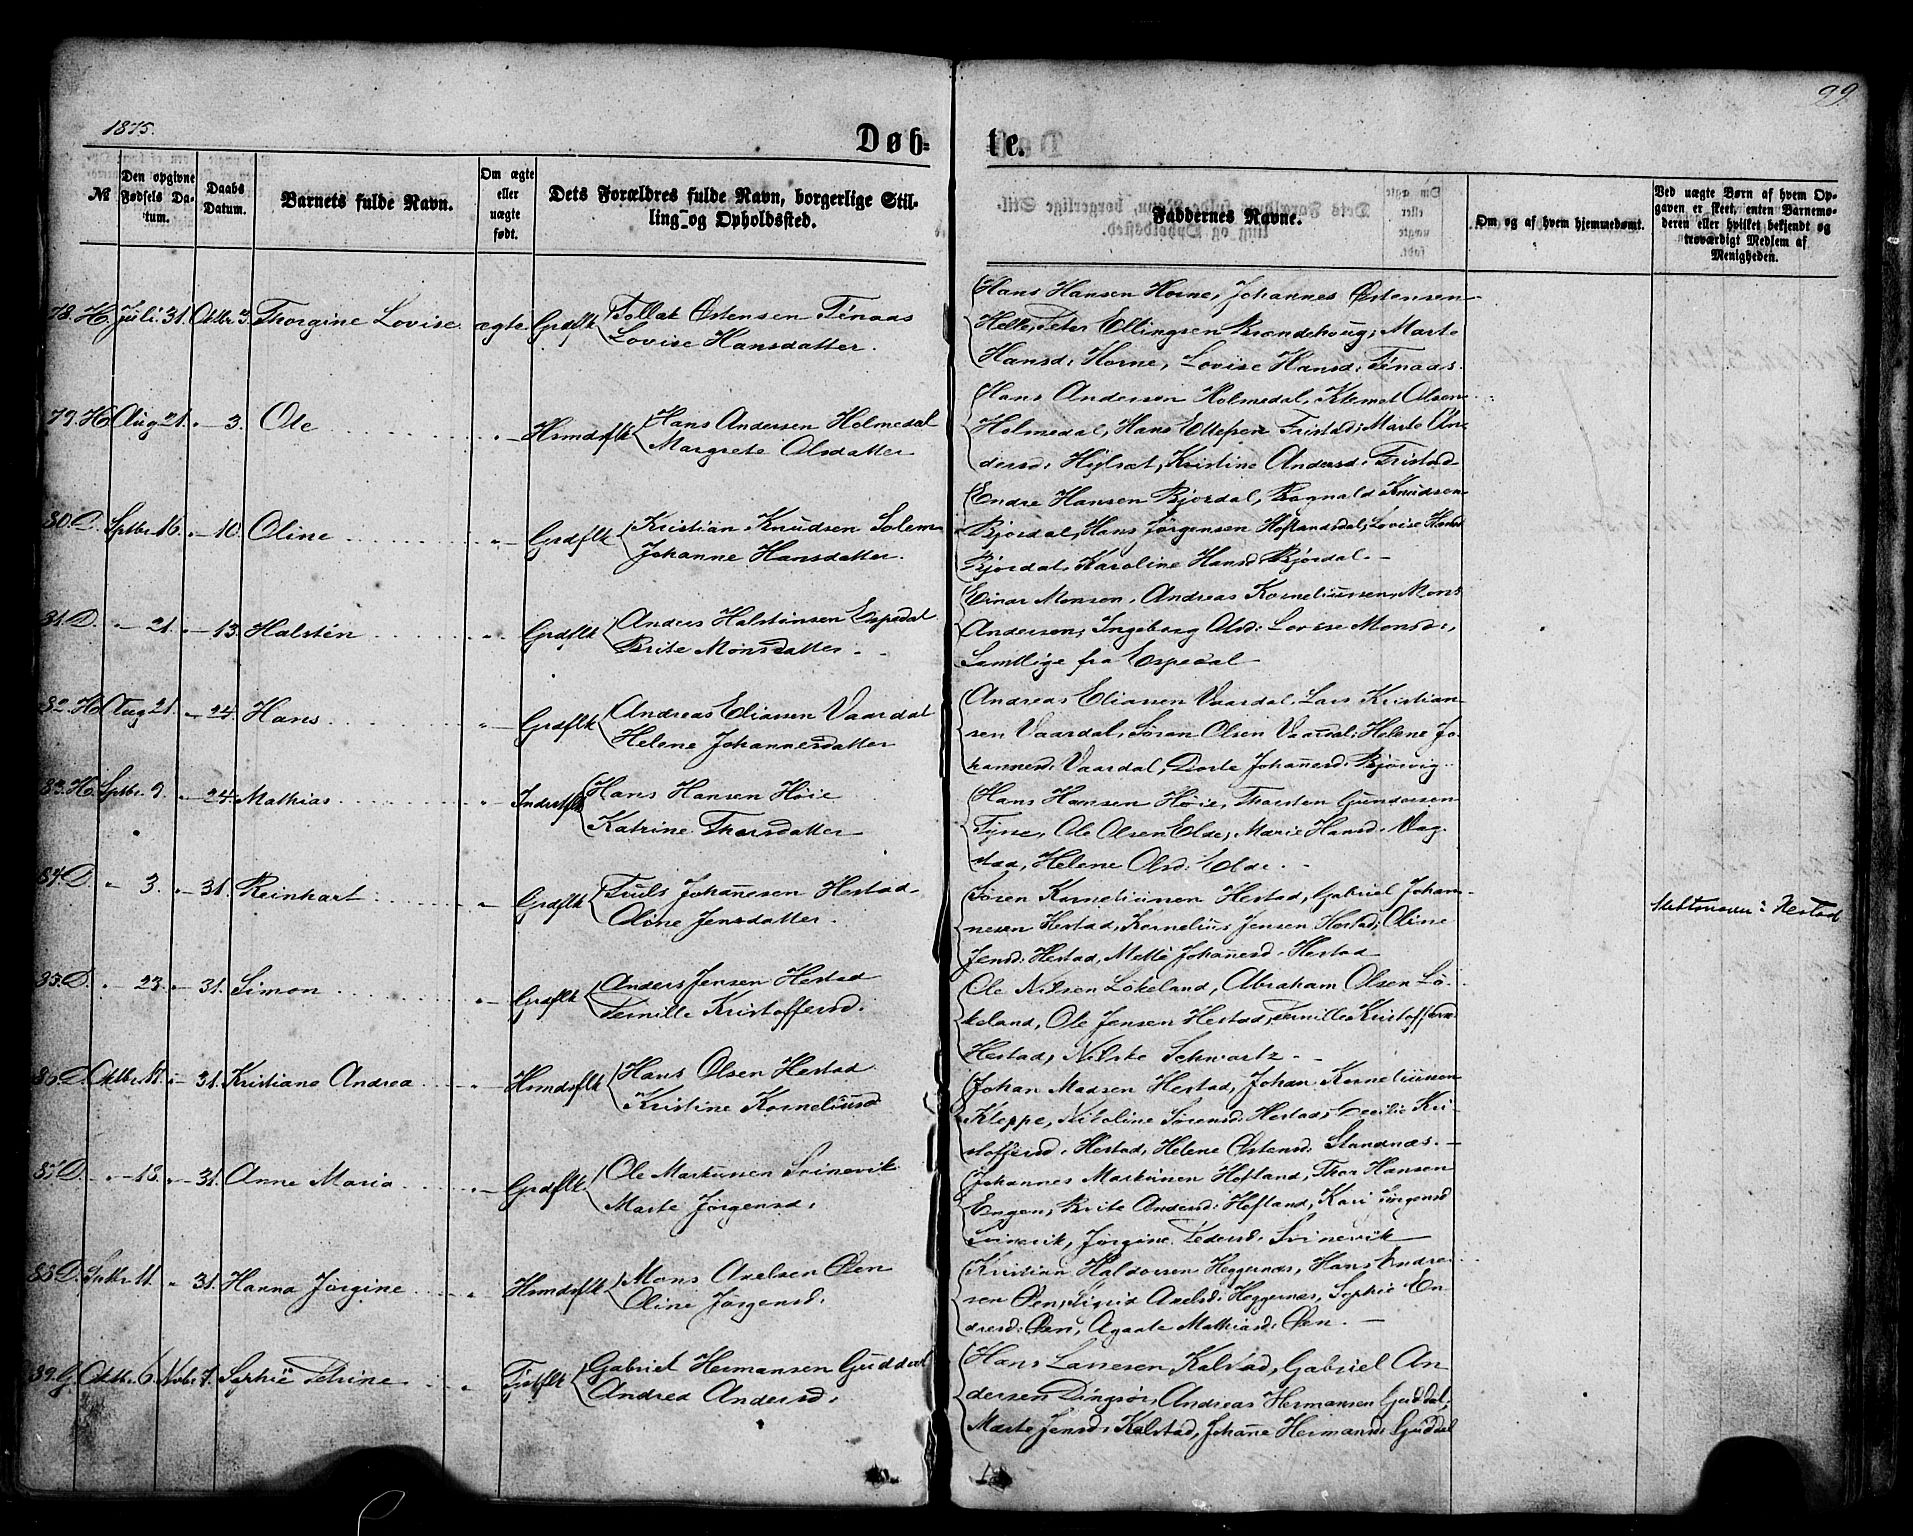 1875.
99
Døb-
te.
№
Den opgivne Fødsels Datum.
Daabs Datum.
Barnets fulde Navn.
Om ægte eller uægte født.
Dets Forældres fulde Navn, borgerlige Stilling og Opholdssted.
Faddernes Navne.
Om og af hvem hjemmedøbt.
Ved uægte Børn af hvem Opgaven er skeet, enten Barnemoderen eller hvilket bekjendt og troværdigt Medlem af Menigheden.
78. H. Juli 31. Oktbr 3. Thorgine Lovise ægte Grdflk Tollak Østensen Tenaas
Lovise Hansdatter.
Hans Hansen Horne, Johannes Østensen
Helle, Peter Ellingsen Brandehoug, Marte
Hansd: Horne, Lovise Hansd: Tenaas.
79. H. Aug 21. " 3. Ole " Hsmdsflk Hans Andersen Holmedal
Margrete Olsdatter
Hans Andersen Holmedal, Klemet Olsen
Holmedal, Hans Ellefsen Tristad, Marte An-
dersd: Hylsæt, Kristine Andersd: Tristad
80. D. Septbr 16. " 10. Oline " Grdflk Kristian Knudsen Solem
Johanne Hansdatter.
Endre Hansen Bjordal, Ragnald Knudsen
Bjordal, Hans Jørgensen Hoflandsdal, Lovise Hansd
Bjordal, Karoline Hansd. Bjordal. –
81. D. " 21. " 13. Halsten " Grdflk Anders Halstensen Espedal
Brite Monsdatter. –
Einar Monsen, Andreas Korneliussen, Mons
Andersen, Ingeborg Olsd: Lovise Monsd:,
Samtlige fra Espedal
82. H. Aug 21. " 24. Hans " Grdflk Andreas Eliassen Vaardal
Helene Johannesdatter
Andreas Eliassen Vaardal, Lars Kristian-
sen Vaardal, Søren Olsen Vaardal, Helene Jo-
hannesd: Vaardal, Dorte Johanesd: Bjørvig.
83. H. Septbr 9. " 24. Mathias " Inderstflk Hans Hansen Høie
Katrine Thorsdatter
Hans Hansen Høie, Thorsten Gundersen
Tysse, Ole Olsen Elde, Marie Hansd. Vag-
stad, Helene Olsd: Elde. –
84. D. " 3. " 31. Reinhart " Grdflk Truls Johanesen Hestad
Oline Jensdatter.
Søren Korneliussen Hestad, Gabriel Johan-
nesen Hestad, Kornelius Jensen Hestad, Oline
Jensd: Hestad, Mette Johanesd. Hestad
Hestad
85. D. " 23. " 31. Simon " Grdflk Anders Jensen Hestad
Pernille Kristoffersd.
Ole Nilsen Løkeland, Abraham Olsen Lø-
keland, Ole Jensen Hestad, Pernille Kristoffersd
Hestad, Nilske Schwartz. –
86. D. Oktbr 11. " 31. Kristiane Andrea " Hsmdsflk Hans Olsen Hestad
Kristine Korneliusd
Johan Madsen Hestad, Johan Korneliussen
Kleppe, Nikoline Sørensd: Hestad, Cecilie Kri-
stoffersd. Hestad, Helene Østensd: Standnæs. –
87. D. " 18. " 31. Anne Maria " Grdflk Ole Markussen Svinevik
Marte Jørgensd.
Johannes Markussen Hofland, Thor Hansen
Engen, Brite Andersd: Hofland, Kari Jørgensd
Svinevik, Jørgine Pedersd. Svinevik
88. D. Septbr 11. " 31. Hanna Jørgine " Hsmdsflk Mons Axelsen Øen
Oline Jørgensd.
Kristian Haldorsen Heggernæs, Hans Endre-
sen Øen, Sigrid Axelsd: Heggernæs, Sophie En-
dresd: Øen, Agaate Mathiasd: Øen. –
89. G. Oktbr. 6. Novbr 7. Sophie Petrine " Gabriel Hermansen Guddal
Andrea Andersd.
Hans Lassesen Kalstad, Gabriel An-
dersen Dingsør, Andreas Hermansen Guddal,
Marte Jensd: Kalstad, Johane Hermansd: Guddal